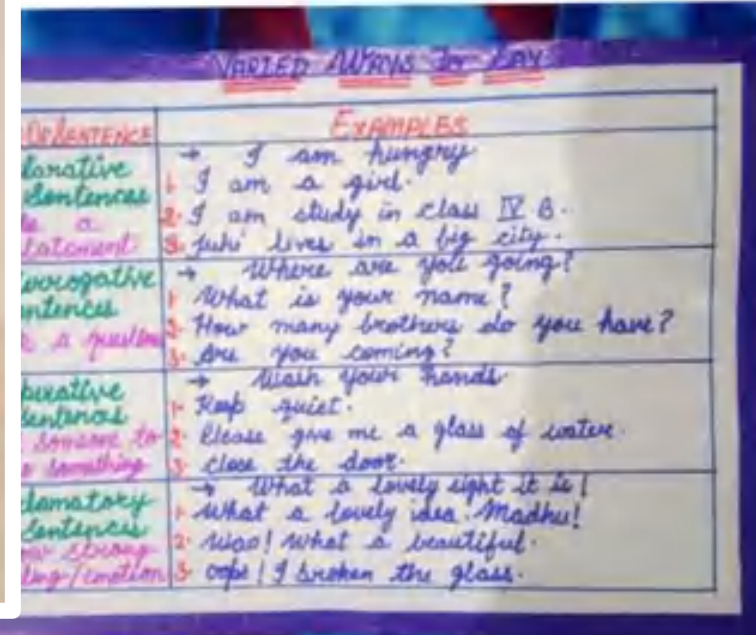 VARIED WAYS TO SAY
OF SENTENCE
EXAMPLES
larative
Sentences
a
tatement
→ I am hungry
1. I am a girl.
2. I am study in class IV B.
3. Juhi lives in a big city.
rrogative
ntences
a question
→ Where are you going?
1. What is your name?
2. How many brothers do you have?
3. Are you coming?
perative
Sentences
someone to
something
→ Wash your hands.
1. Keep quiet.
2. Please give me a glass of water.
3. Close the door.
lamatory
Sentences
ow strong
ling/emotion
→ What a lovely sight it is!
1. What a lovely idea! Madhu!
2. Wao! What a beautiful.
3. oops! I broken the glass.